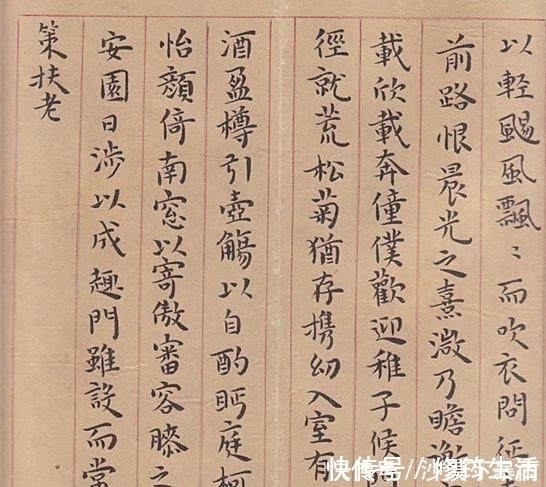 以輕颺風飄〻而吹衣問征
前路恨晨光之熹微乃瞻衡
載欣載奔僮僕歡迎稚子候
徑就荒松菊猶存携幼入室有
酒盈樽引壺觴以自酌眄庭柯
怡顏倚南窓以寄傲審容膝之
安園日涉以成趣門雖設而常
策扶老
快传号/生活